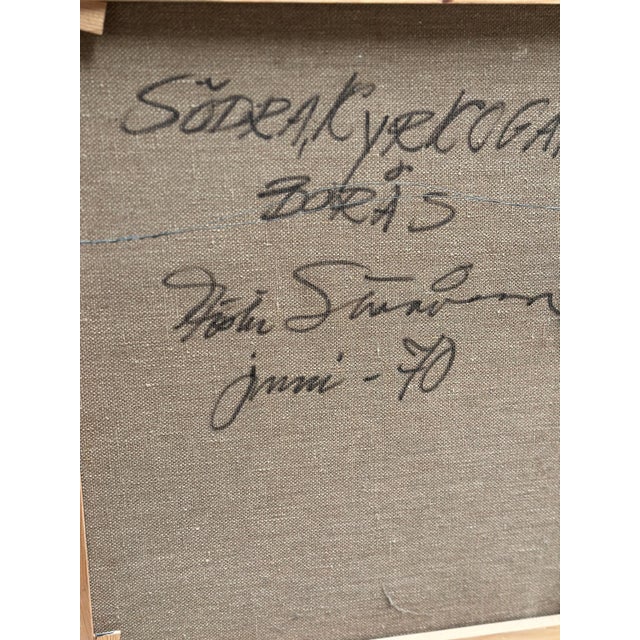 SÖDRA KYRKOGA
BORÅS
juni - 70